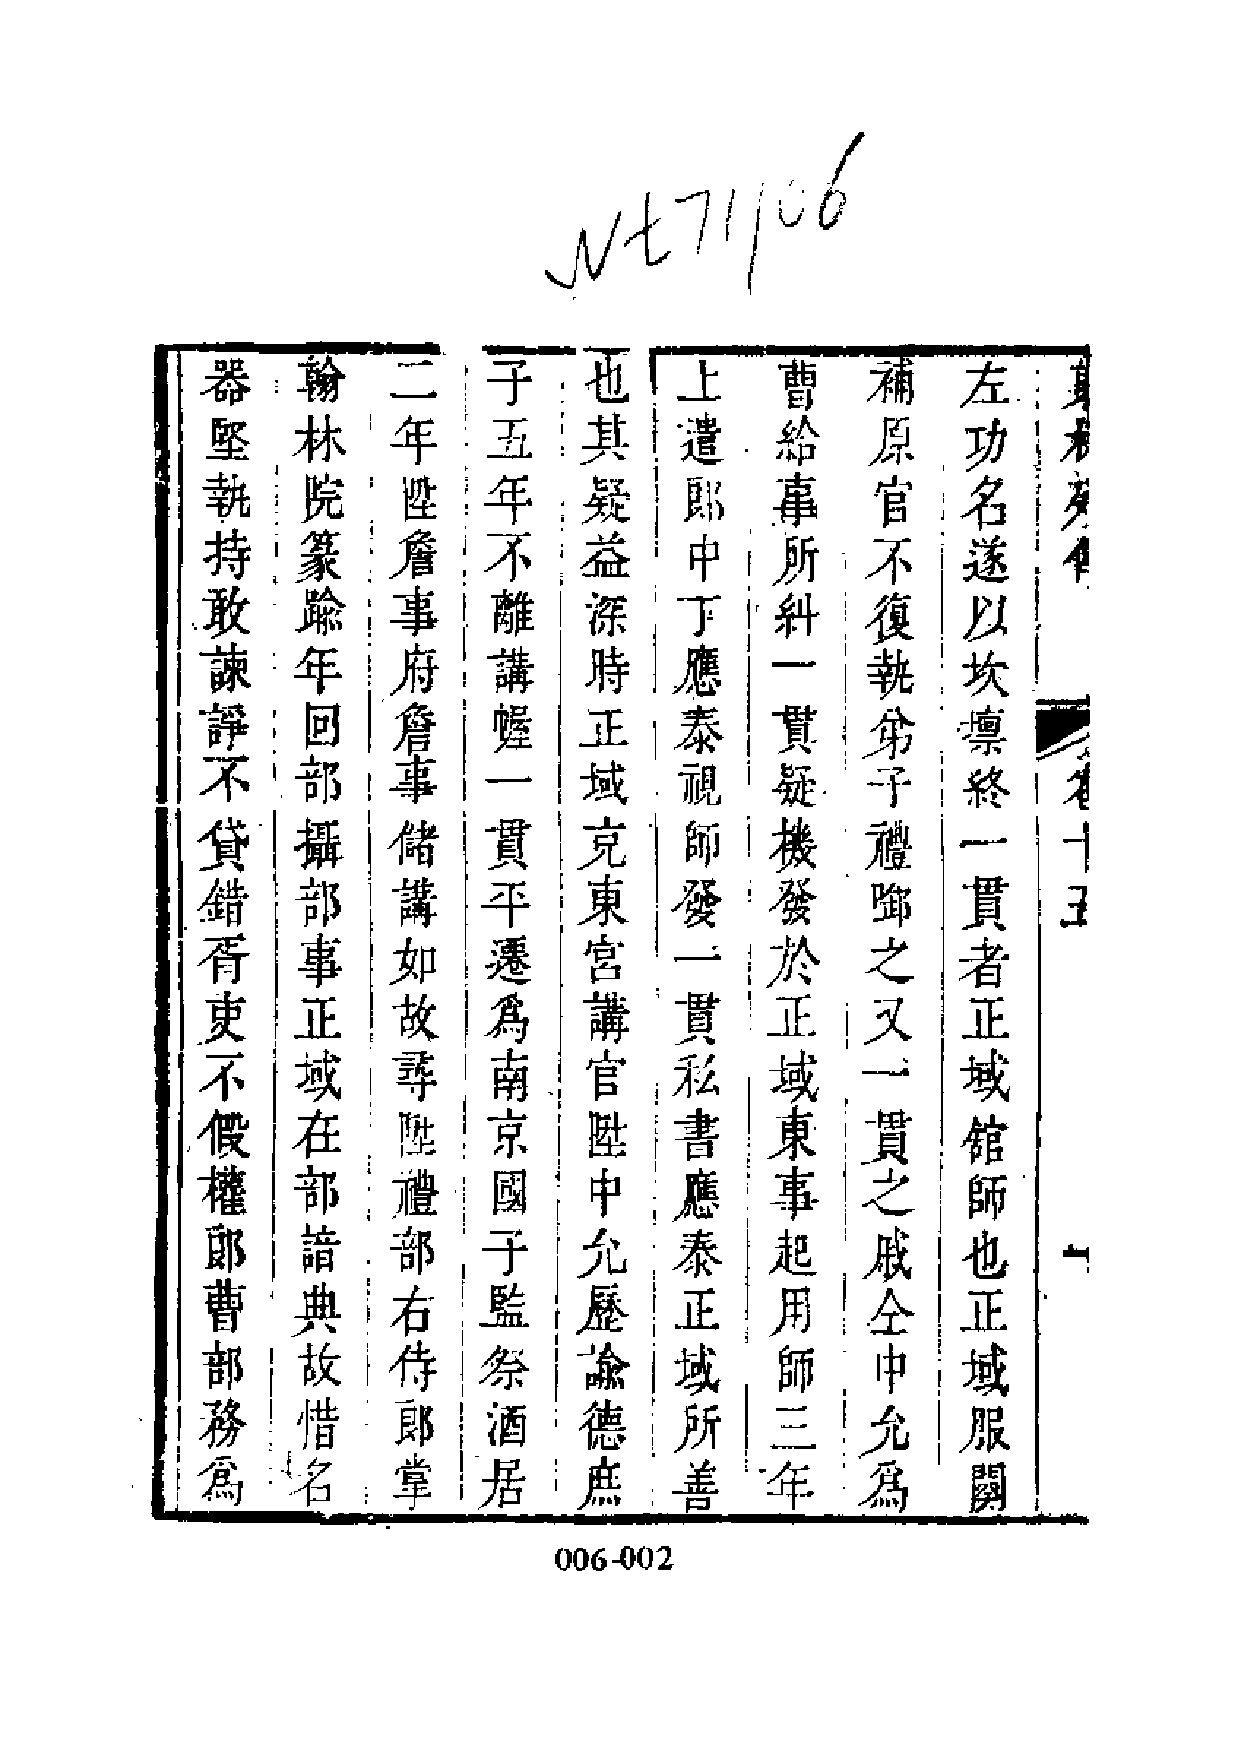 左功名遂以坎壈終一貫者正域館師也正域服闋
補原官不復執弟子禮啣之又一貫之戚仝中允爲
曹給事所糾一貫疑機發於正域東事起用師三年
上遣郎中丁應泰視師發一貫私書應泰正域所善
也其疑益深時正域克東宮講官陞中允歷諭德庶
子五年不離講幄一貫平遷爲南京國子監祭酒居
二年陞詹事府詹事儲講如故尋陞禮部右侍郎掌
翰林院篆踰年回部攝部事正域在部諳典故惜名
器堅執持敢諫諍不貸錯胥吏不假權郎曹部務爲
006-002